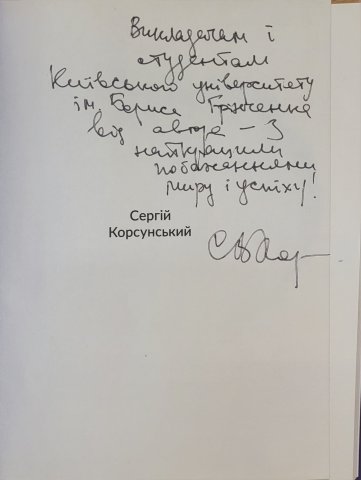 Викладачам і
студентам
Київського університету
ім. Бориса Грінченка
від автора – З
найкращими
побажаннями
миру і успіху!
Сергій
Корсунський